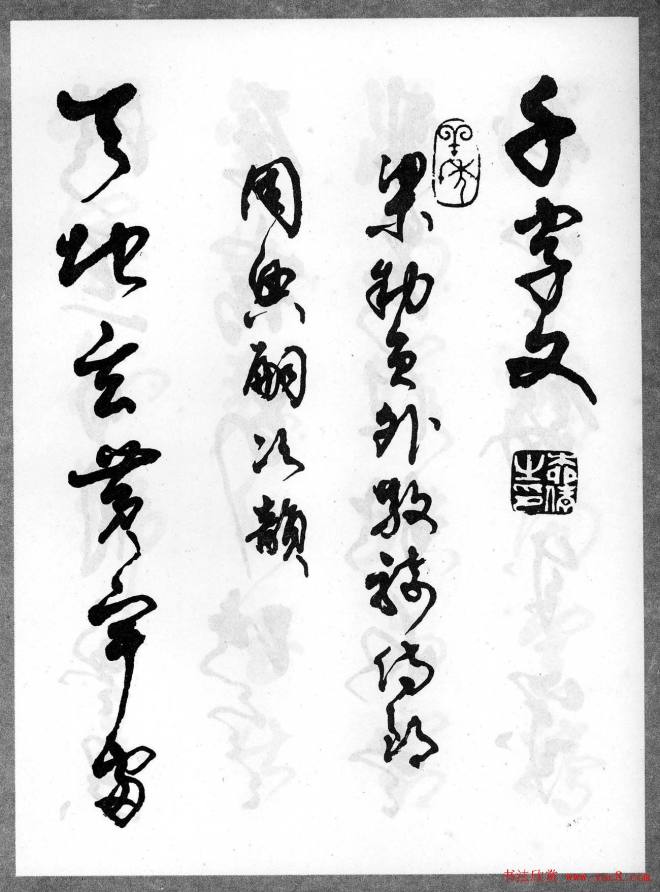 千字文
梁勅員外散騎侍郎
周興嗣次韻
天地玄黃宇宙
书法欣赏 www.yac8.com